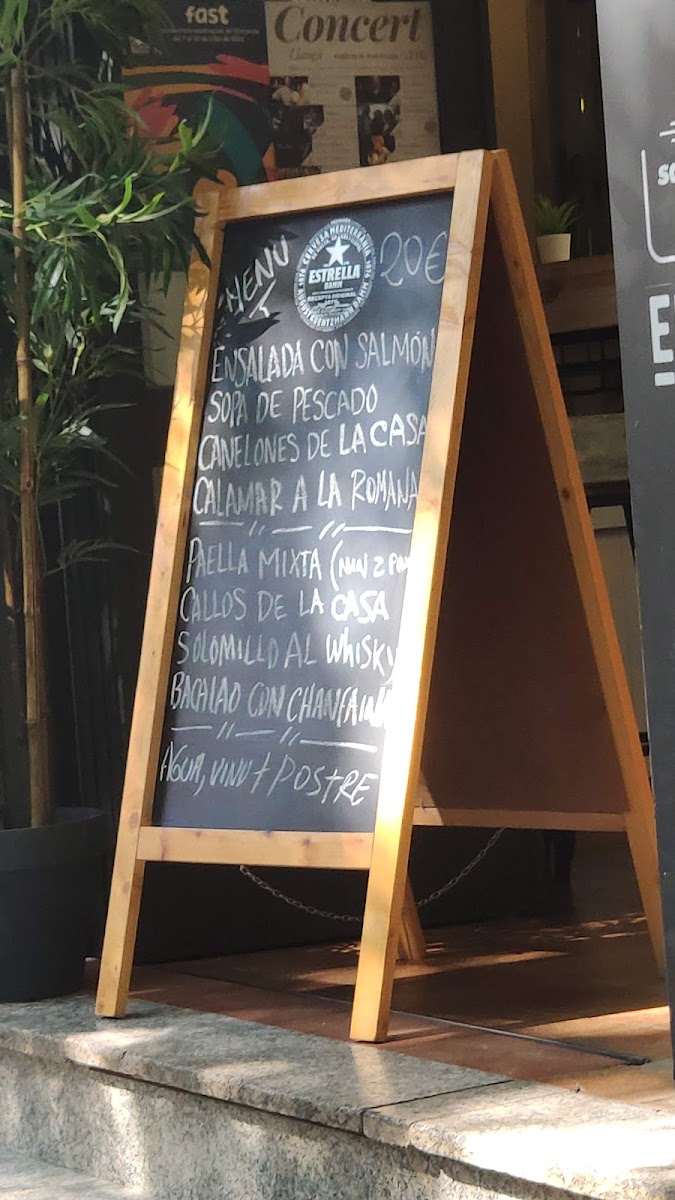 fast
Concert
Llançà
MENU
CERVESA MEDITERRÀNIA
1876
1876
ESTRELLA
DAMM
RECEPTA ORIGINAL
AUGUST KUENTZMANN DAMM
20€
ENSALADA CON SALMÓN
SOPA DE PESCADO
CANELONES DE LA CASA
CALAMAR A LA ROMANA
PAELLA MIXTA (MIN 2
CALLOS DE LA CASA
SOLOMILLO AL WHISKY
BACALAO CON
AGUA, VINO + POSTRE
E